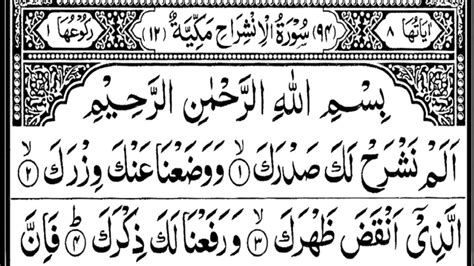 اٰيَاتُهَا ٨ (٩٤) سُوْرَةُ الْاِنْشِرَاحِ مَكِّيَّةٌ (١٢) رُكُوْعُهَا ١
بِسْمِ اللّٰهِ الرَّحْمٰنِ الرَّحِيْمِ
اَلَمْ نَشْرَحْ لَكَ صَدْرَكَ ۙ﴿١﴾ وَوَضَعْنَا عَنْكَ وِزْرَكَ ۙ﴿٢﴾
الَّذِيْۤ اَنْقَضَ ظَهْرَكَ ۙ﴿٣﴾ وَرَفَعْنَا لَكَ ذِكْرَكَ ؕ﴿٤﴾ فَاِنَّ